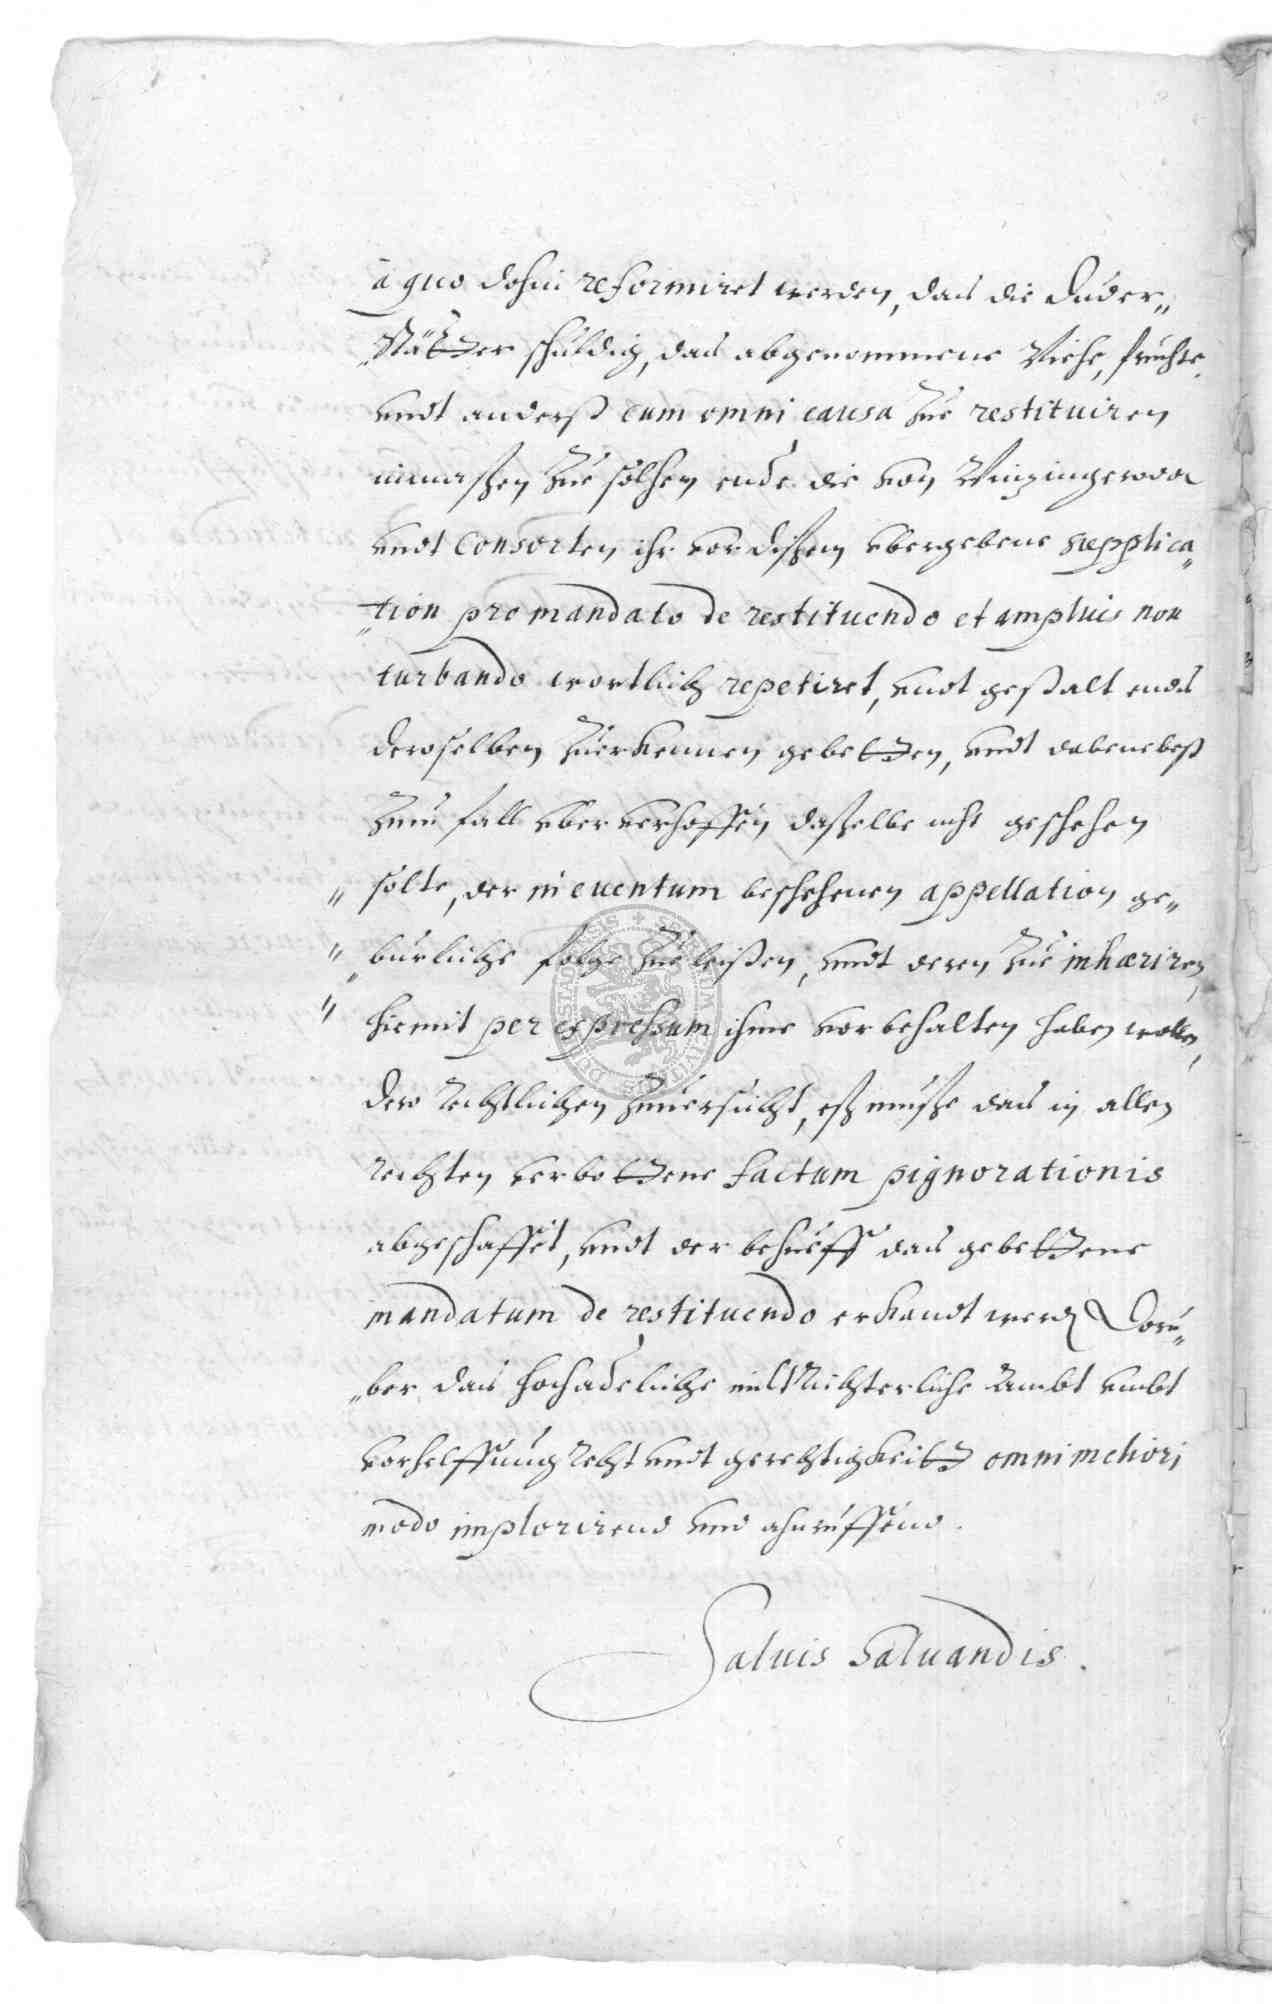 â quo dohin reformiret werden, das die Duder„
„stätter schuldig, das abgenommene Viehe, fruchte
undt anderß cum omni causa zue restituiren
inmaßen zue solchem ende die von Winzingeroda
undt Consorten ihr vor dißem ubergebene supplica„
„tion pro mandato de restituendo et amplius non
turbando wortlich repetiret, undt gestalt ends
deroselben zuerkennen gebetten, undt dabenebest
zum fall uber verhoffen daßelbe nicht geschehen
„ solte, der in euentum beschehenen appellation ge„
„ „burliche folge zue leisten, undt deren zue inhæriren,
„ hiemit per expressum ihme vorbehalten haben wollen,
der rechtlichen zuuersicht, eß muße das in allen
rechten verbottene factum pignorationis
abgeschaffet, undt der behueff das gebettene
mandatum de restituendo erkandt werden Doru„
„ber das hochadeliche mildt Richterliche Ambt umbt
vorhelffung recht undt gerechtigkeitt omni meliori
modo implorirend und ahnruffend.
Saluis Saluandis.